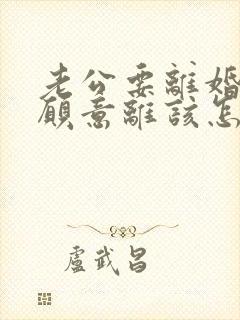 老公要離婚
願意離該怎
盧武昌